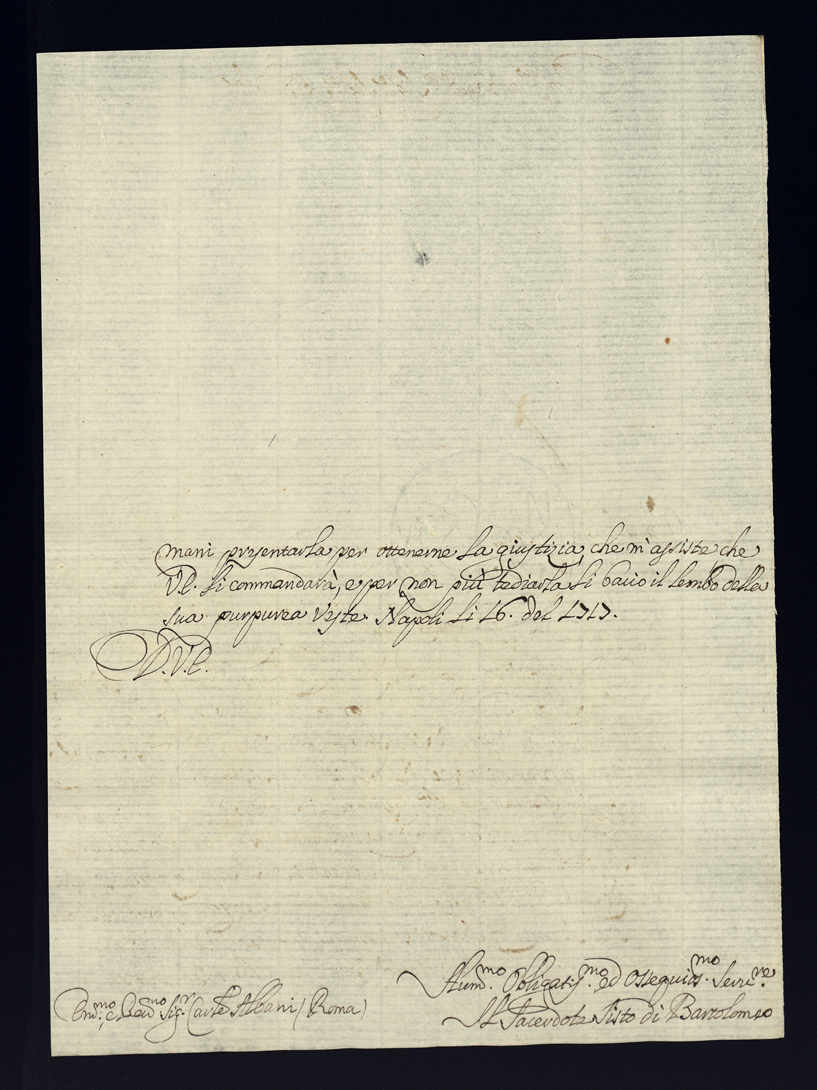 mani presentarla per ottenerne la giustizia, che m'assiste che
V.E. li commandarà, e per non più tediarla li bacio il lembo della
sua purpurea veste Napoli li 16. del 1717.
D.V.E.
Hum.mo Obligatis.mo ed Ossequios.mo Serv.re
Em.mo e Rev.mo Sig.r Card.le Albani (Roma)
Il Sacerdote Sisto di Bartolomeo